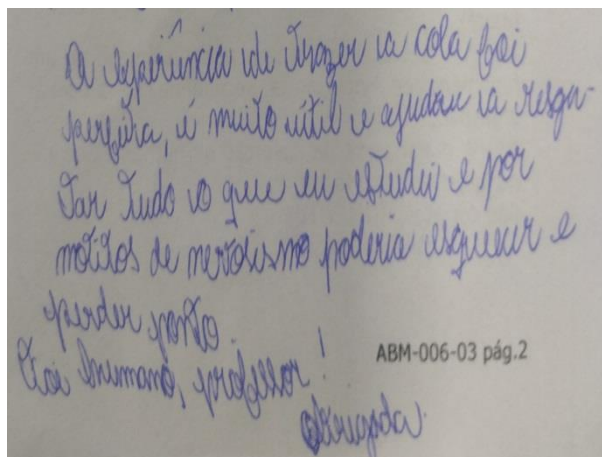 A experiência de trazer a cola foi
perfeita, é muito útil e ajudou a resga-
tar tudo o que eu estudei e por
motivos de nervosismo poderia esquecer e
perder ponto.
Foi humano, professor!
ABM-006-03 pág.2
Obrigada.